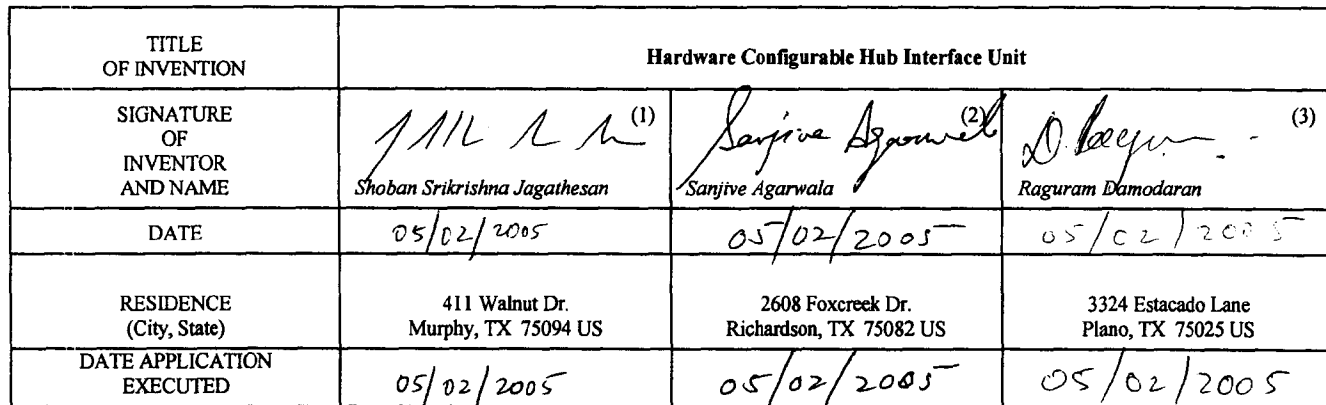 TITLE
OF INVENTION
Hardware Configurable Hub Interface Unit
SIGNATURE
OF
INVENTOR
AND NAME
(1)
Shoban Srikrishna Jagathesan
Sanjive Agarwala
(2)
Sanjive Agarwala
D. Ragu
(3)
Raguram Damodaran
DATE
05/02/2005
05/02/2005
05/02/2005
RESIDENCE
(City, State)
411 Walnut Dr.
Murphy, TX 75094 US
2608 Foxcreek Dr.
Richardson, TX 75082 US
3324 Estacado Lane
Plano, TX 75025 US
DATE APPLICATION
EXECUTED
05/02/2005
05/02/2005
05/02/2005